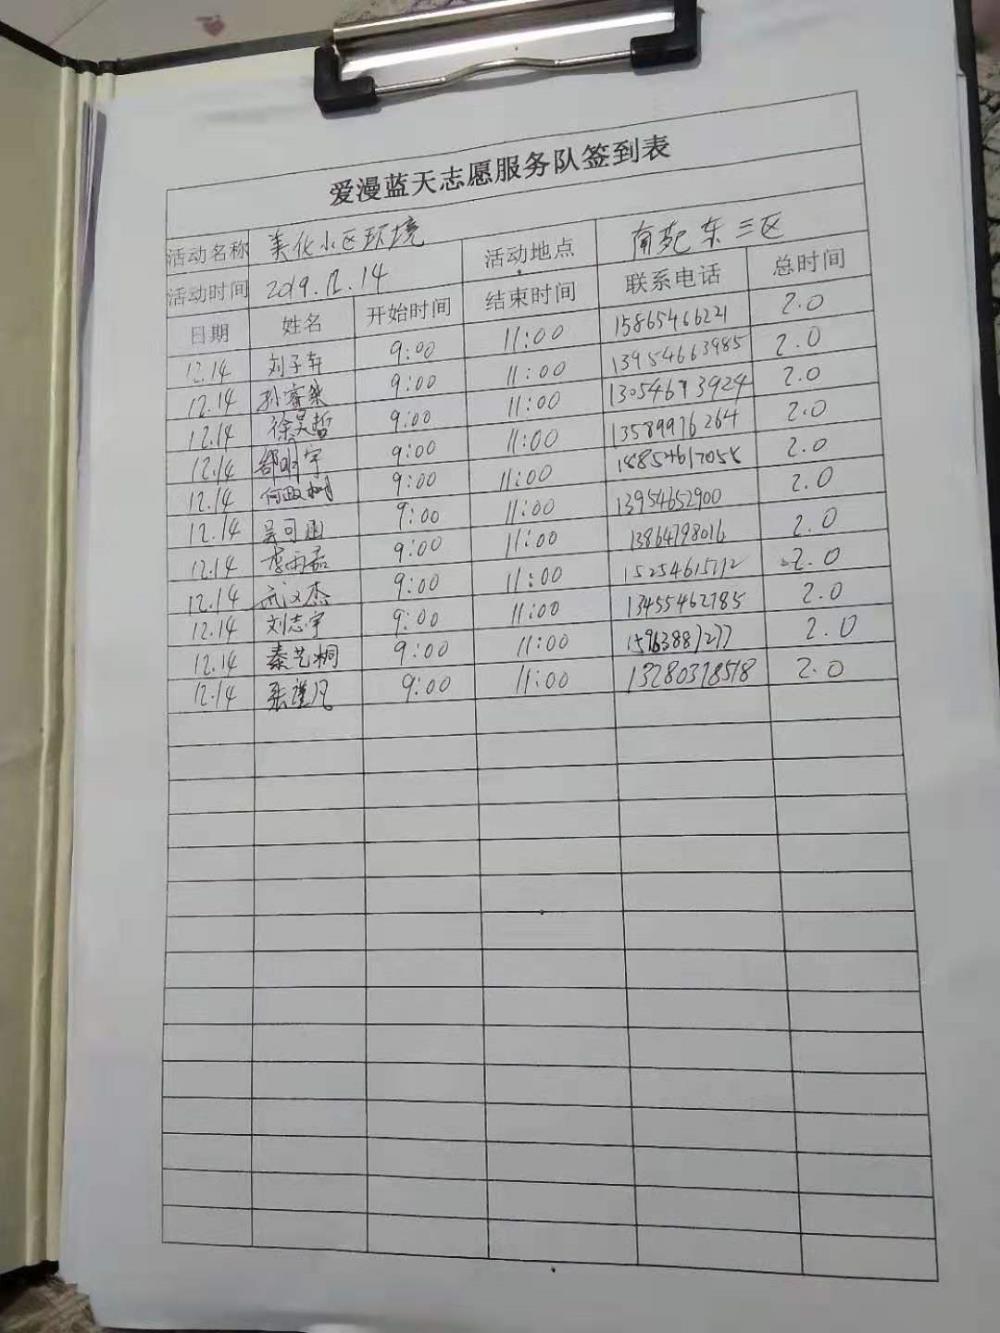 爱漫蓝天志愿服务队签到表
活动名称 美化小区环境 活动地点 南苑东三区
活动时间 2019.12.14
日期 姓名 开始时间 结束时间 联系电话 总时间
12.14 刘子轩 9:00 11:00 15865466221 2.0
12.14 9:00 11:00 13954663985 2.0
12.14 徐昊哲 9:00 11:00 13054673924 2.0
12.14 邵明宇 9:00 11:00 13589976264 2.0
12.14 何政树 9:00 11:00 18854617058 2.0
12.14 吴可函 9:00 11:00 13954652900 2.0
12.14 李雨茹 9:00 11:00 13864798016 2.0
12.14 武汉杰 9:00 11:00 2.0
12.14 刘志宇 9:00 11:00 13455462785 2.0
12.14 秦艺桐 9:00 11:00 15963887277 2.0
12.14 张谨凡 9:00 11:00 13280378518 2.0